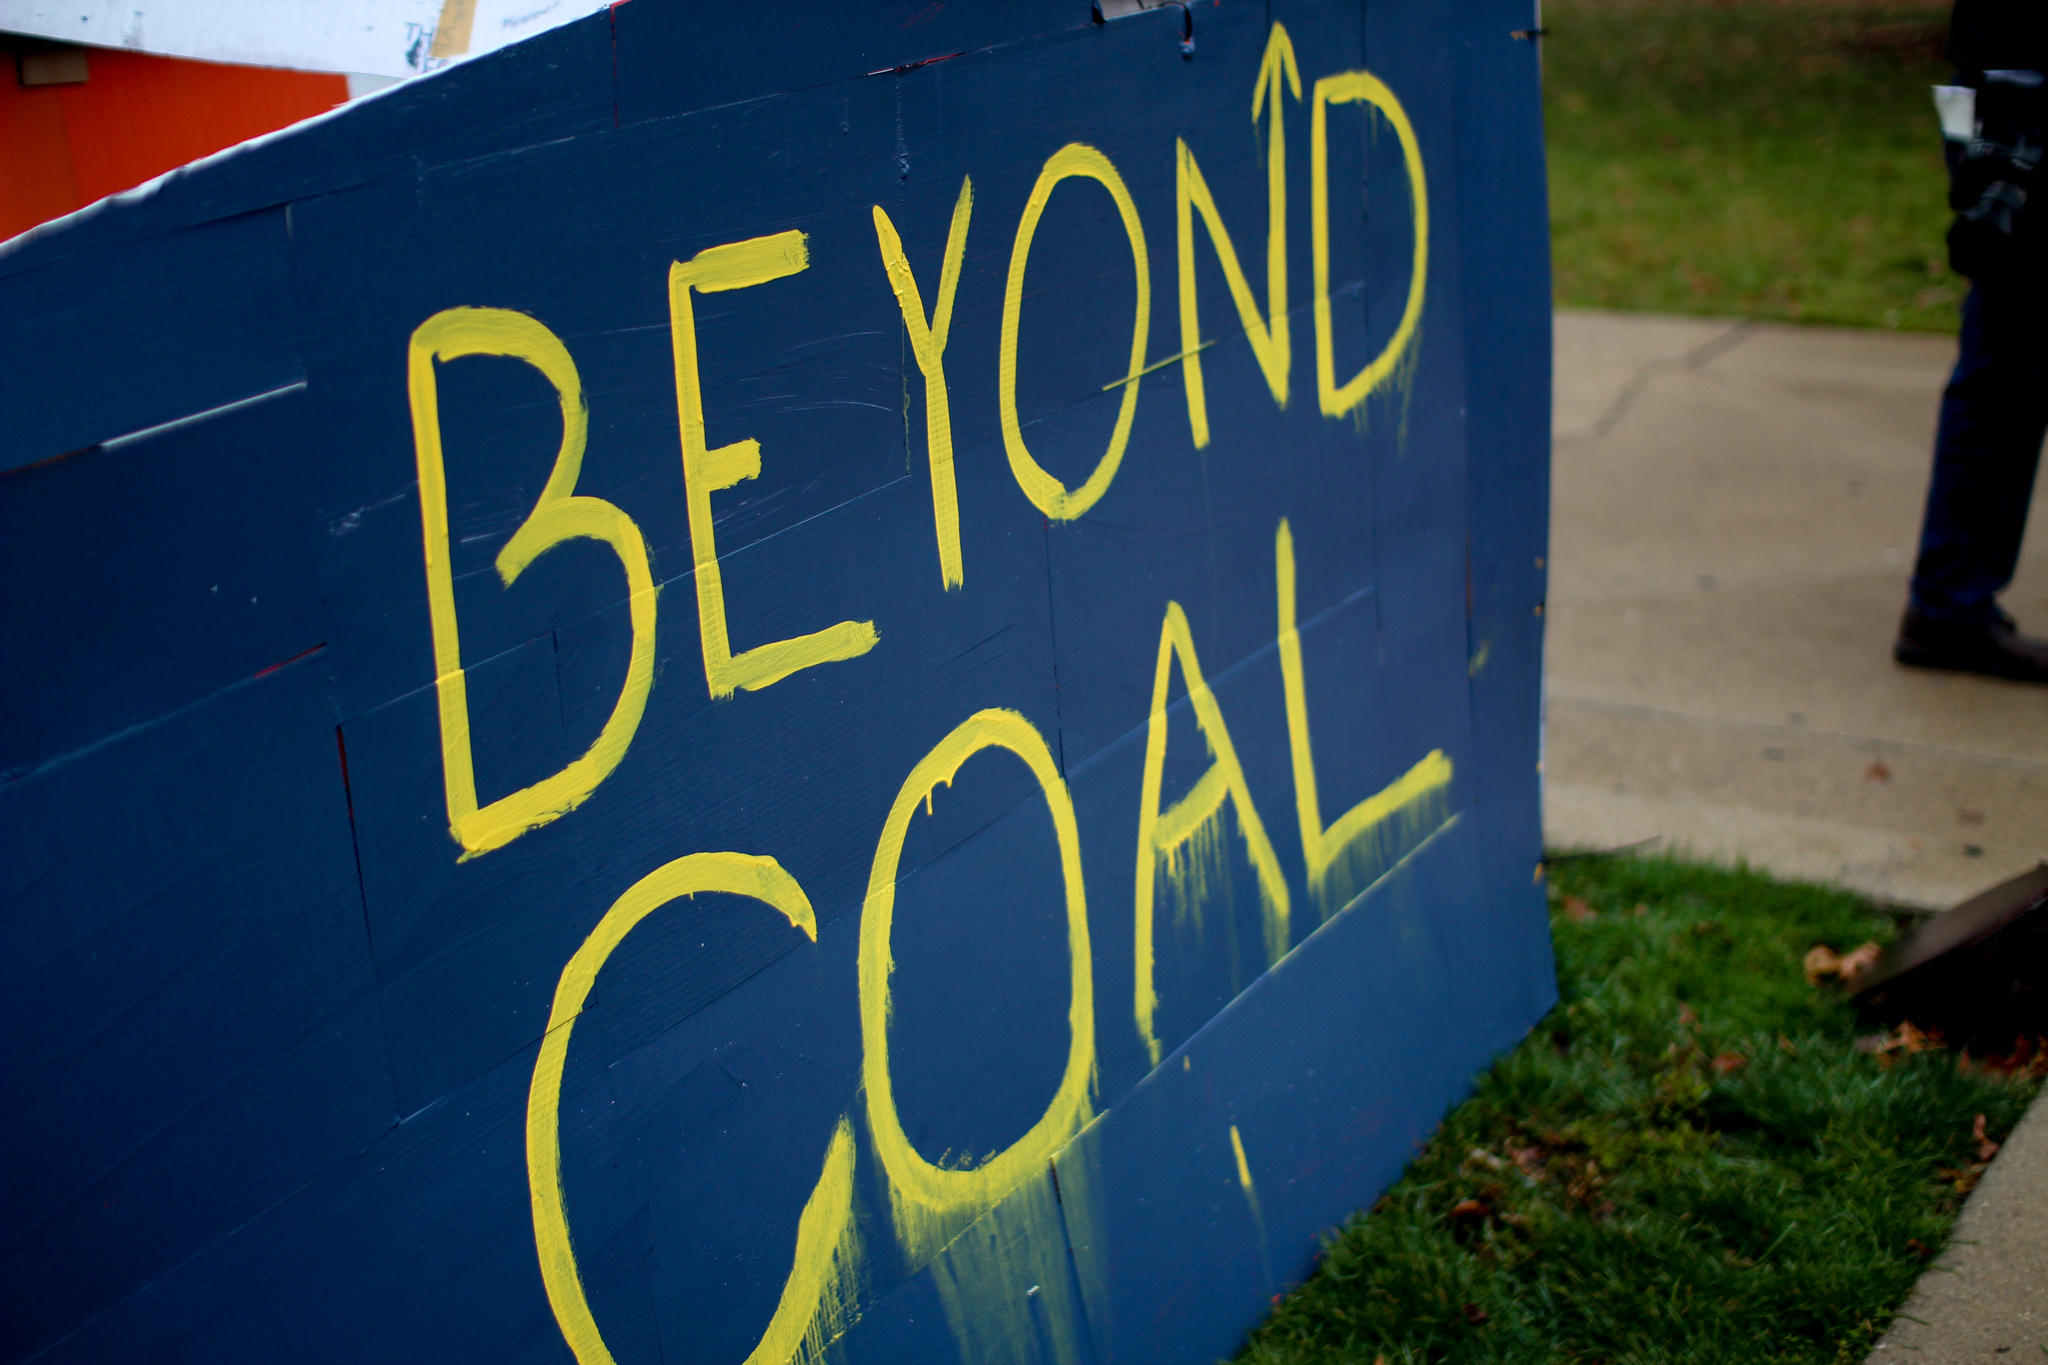 BEYOND
COAL